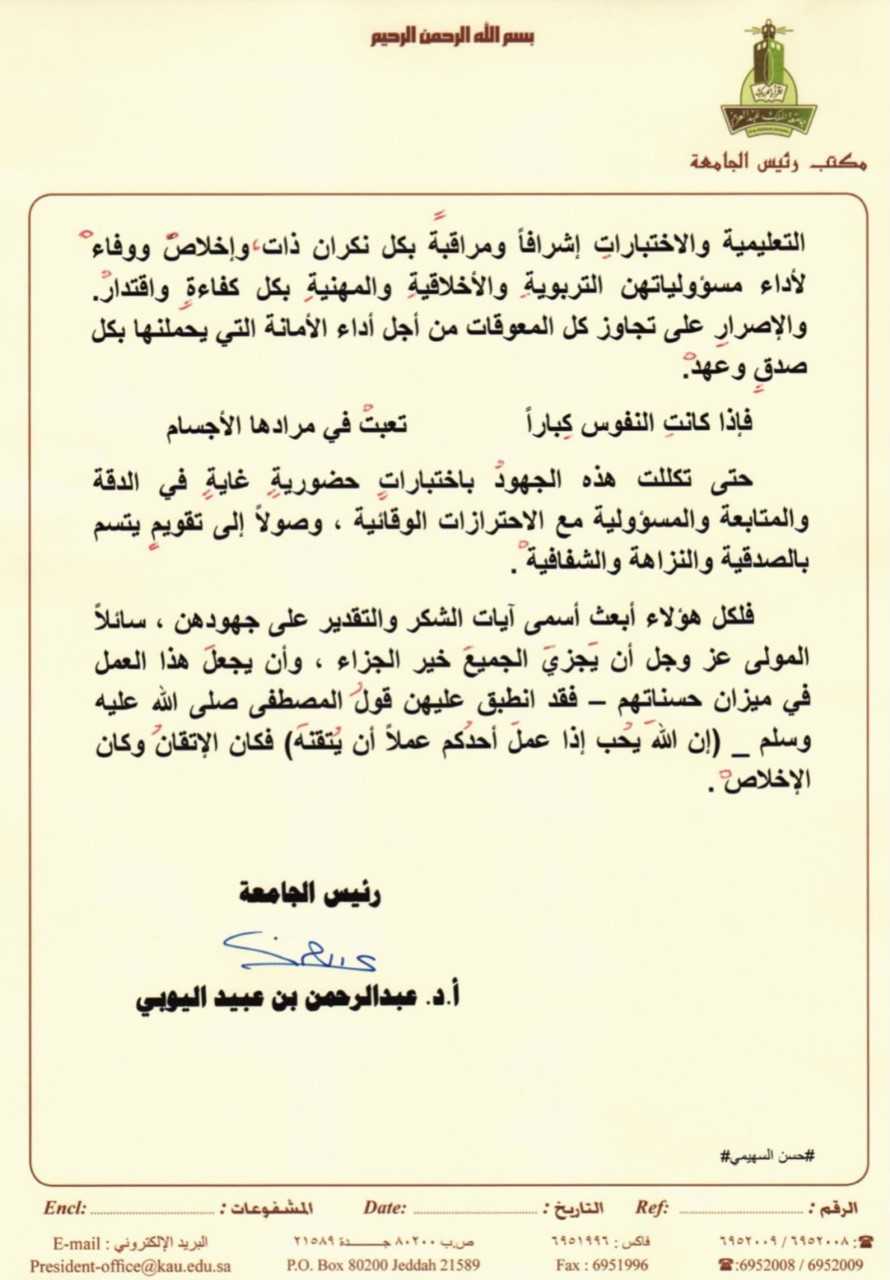 بسم الله الرحمن الرحيم
جامعة الملك عبدالعزيز
مكتب رئيس الجامعة
التعليمية والاختباراتِ إشرافاً ومراقبةً بكل نكران ذات، وإخلاصْ ووفاءْ
لأداء مسؤولياتهن التربويةِ والأخلاقيةِ والمهنيةِ بكل كفاءةٍ واقتدارْ.
والإصرارِ على تجاوز كل المعوقات من أجل أداء الأمانة التي يحملنها بكل
صدقٍ وعهدْ.
فإذا كانتِ النفوس كِباراً تعبتْ في مرادها الأجسام
حتى تكللت هذه الجهودُ باختباراتٍ حضوريةٍ غايةٍ في الدقة
والمتابعة والمسؤولية مع الاحترازات الوقائية ، وصولاً إلى تقويمٍ يتسم
بالصدقية والنزاهة والشفافيةْ .
فلكل هؤلاء أبعث أسمى آيات الشكر والتقدير على جهودهن ، سائلاً
المولى عز وجل أن يَجزيَ الجميعَ خير الجزاء ، وأن يجعلَ هذا العمل
في ميزان حسناتهم – فقد انطبق عليهن قولُ المصطفى صلى الله عليه
وسلم _ (إن اللهَ يُحب إذا عملَ أحدُكم عملاً أن يُتقنهَ) فكان الإتقانُ وكان
الإخلاصْ .
رئيس الجامعة
أ.د. عبدالرحمن بن عبيد اليوبي
#حسن السهيمي#
الرقم : Ref: التاريخ : Date: المشفوعات : Encl:
☎: ٦٩٥٢٠٠٨ / ٦٩٥٢٠٠٩ فاكس : ٦٩٥١٩٩٦ ص.ب ٨٠٢٠٠ جـــدة ٢١٥٨٩ البريد الإلكتروني : E-mail
☎:6952008 / 6952009 Fax : 6951996 P.O. Box 80200 Jeddah 21589 President-office@kau.edu.sa